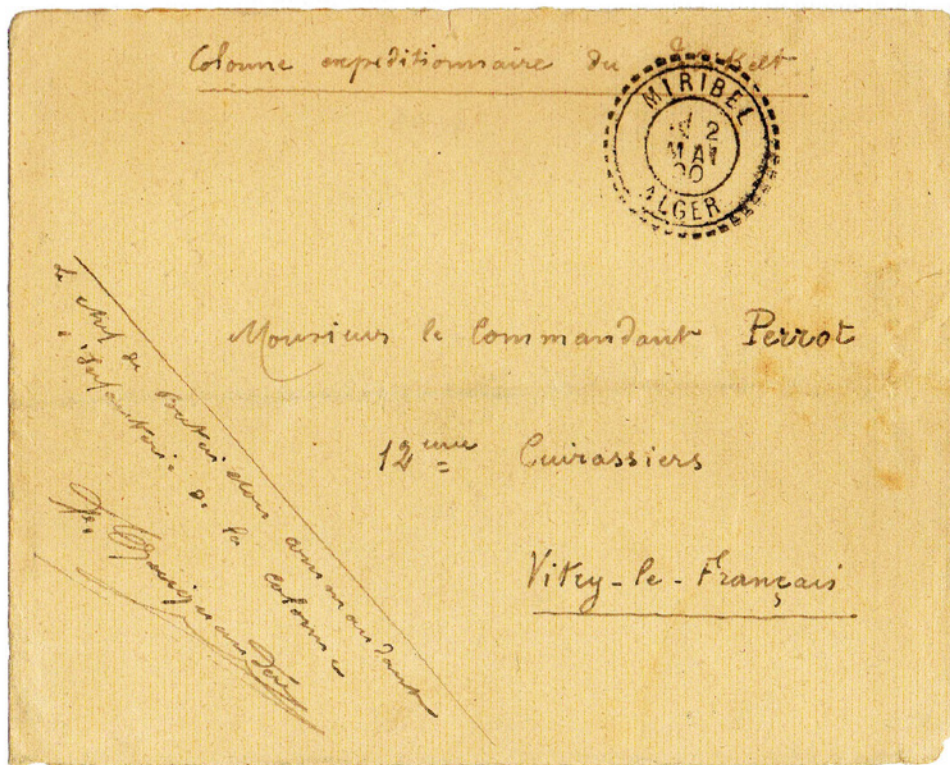 Colonne expéditionnaire du
MIRIBEL
2
MAI
00
ALGER
Monsieur le Commandant Perrot
12eme Cuirassiers
Vitry-le-Français
Le chef de Bataillon commandant
l'infanterie de la colonne